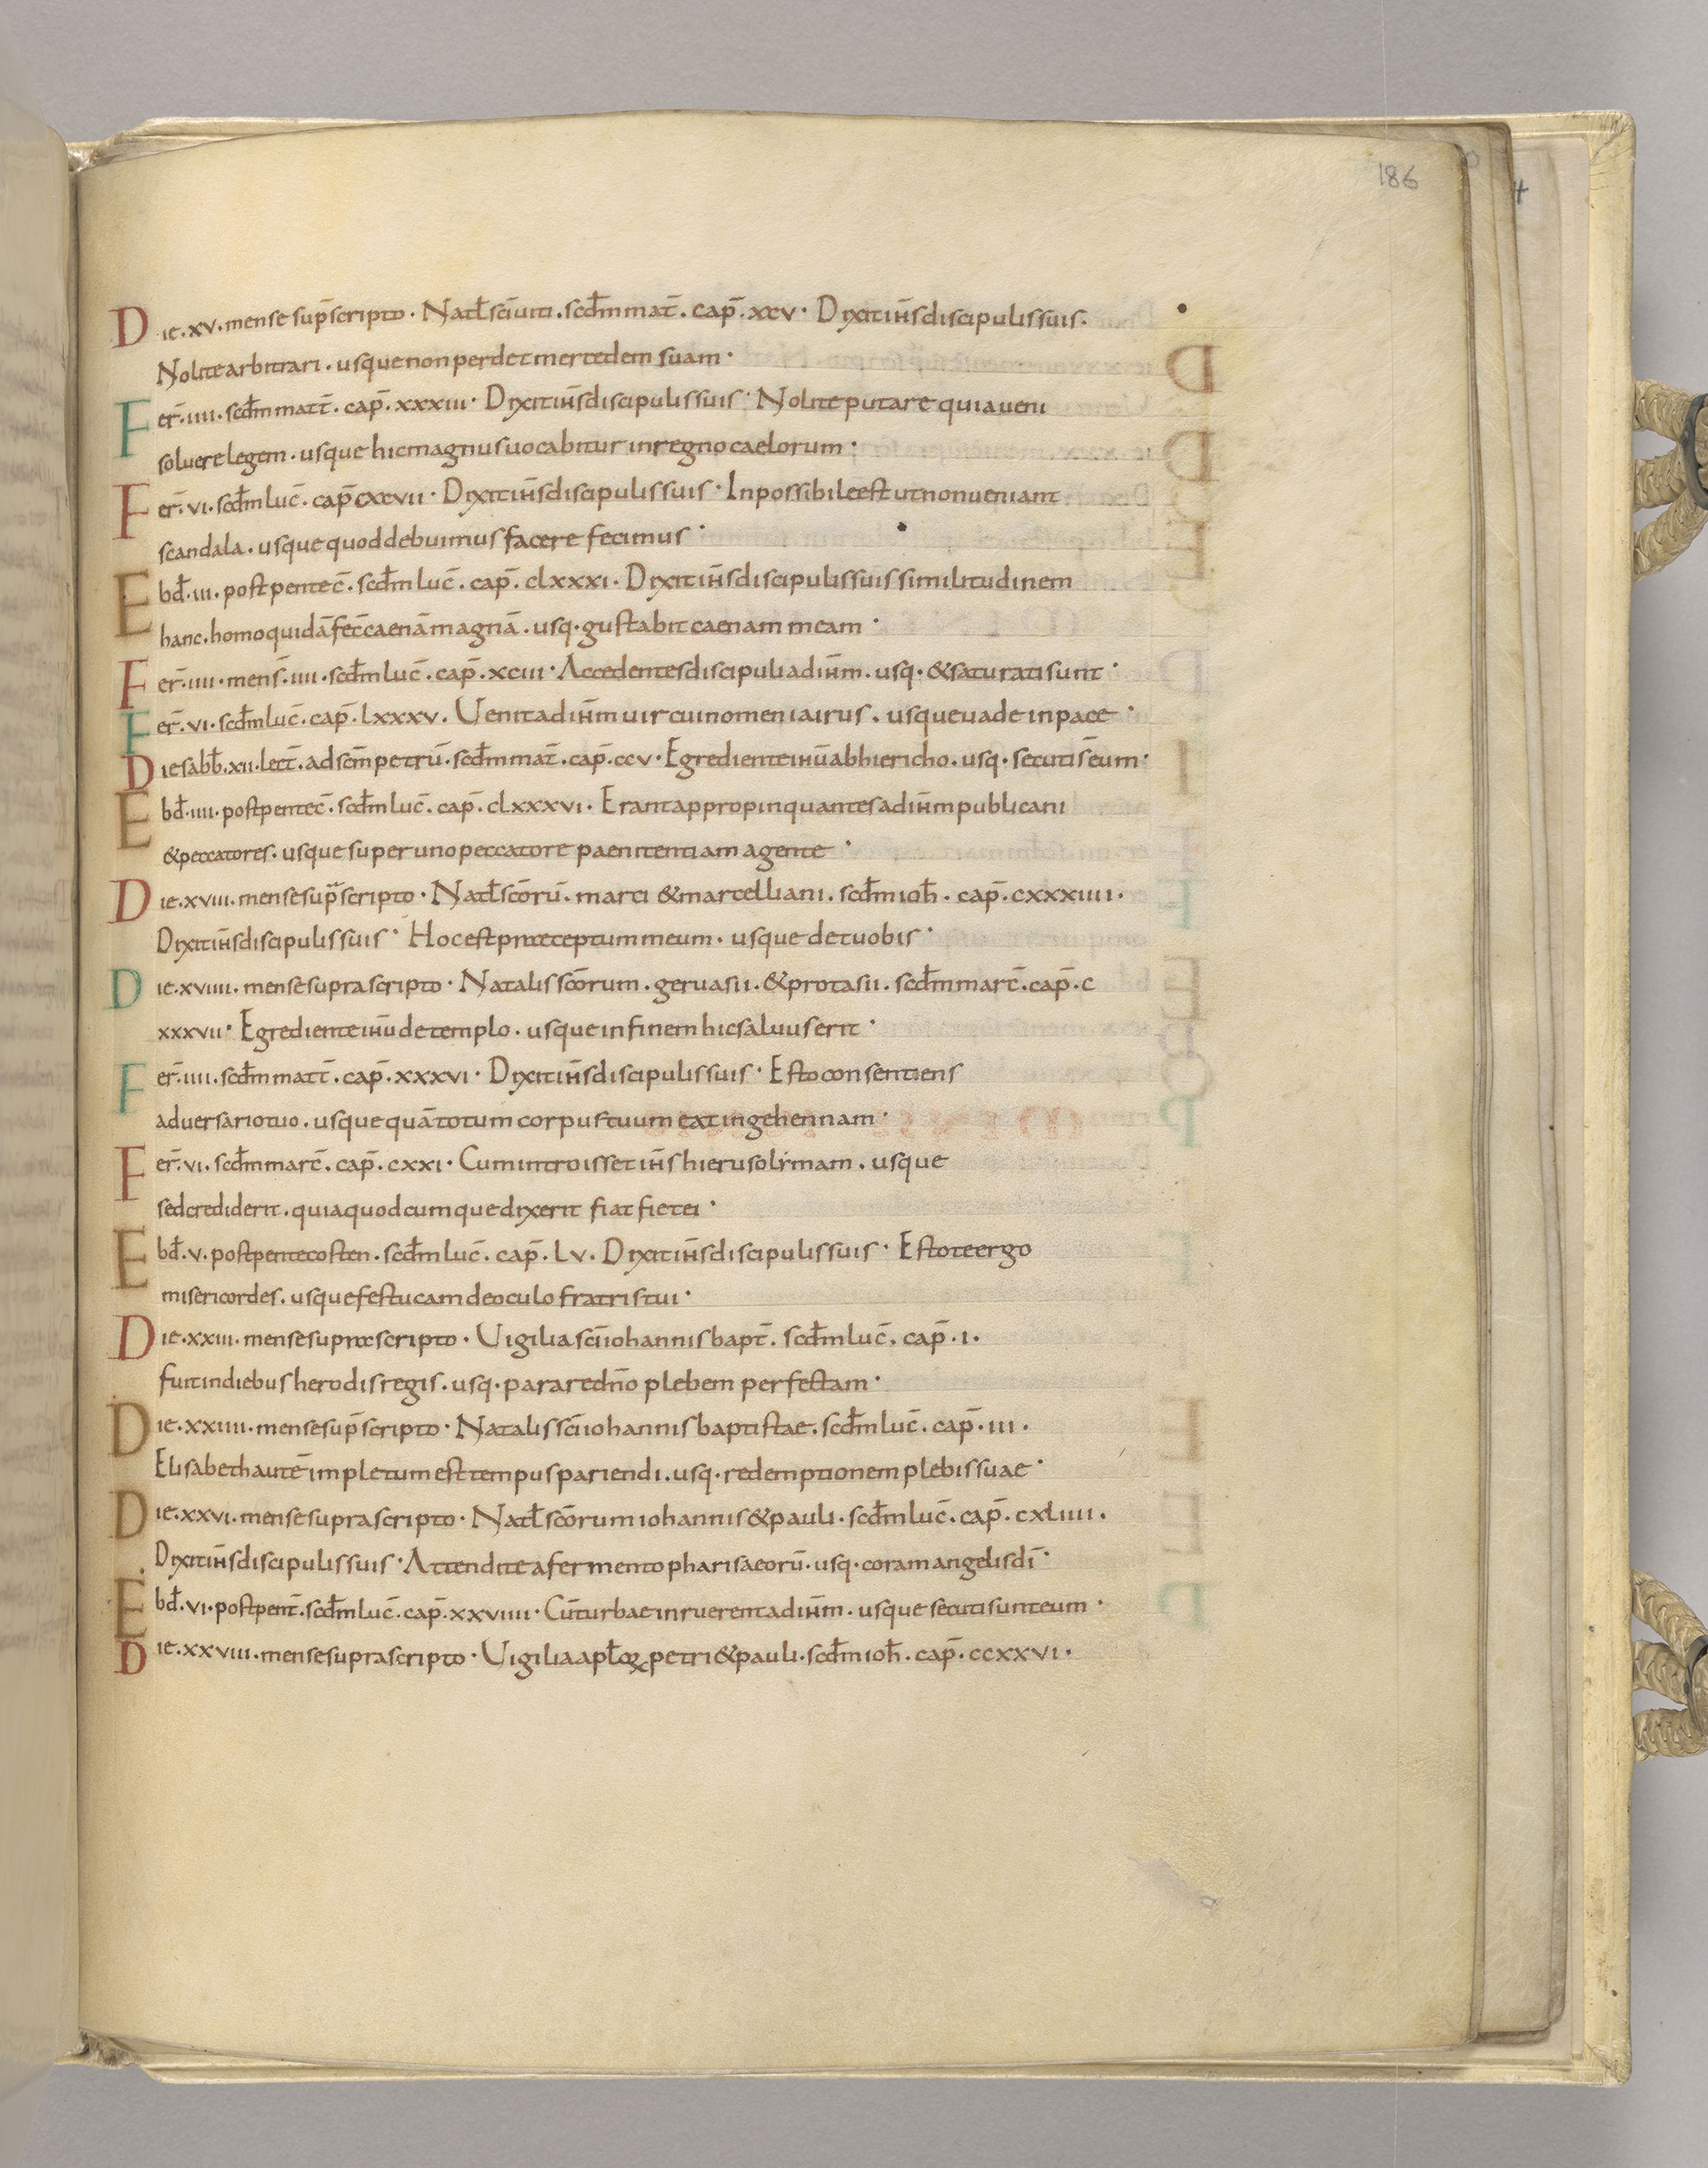 186
Die. xv. mense sup̄scripto. Natł sc̄i uiti. scđm mat̄. cap̄. xcv. Dixit ih̄s discipulis suis.
Nolite arbitrari. usque non perdet mercedem suam.
Fer̄. iiii. scđm matt̄. cap̄. xxxiii. Dixit ih̄s discipulis suis. Nolite putare quia ueni
soluere legem. usque hic magnus uocabitur in regno caelorum.
Fer̄. vi. scđm luc̄. cap̄ cxcvii. Dixit ih̄s discipulis suis. Inpossibile est ut non ueniant
scandala. usque quod debuimus facere fecimus.
Ebđ. iii. post pentec̄. scđm luc̄. cap̄. clxxxi. Dixit ih̄s discipulis suis similitudinem
hanc. homo quidā fec̄ caenā magnā. usq. gustabit caenam meam.
Fer̄. iiii. mens̄. iiii. scđm luc̄. cap̄. xciii. Accedentes discipuli ad ih̄m. usq. & saturati sunt.
Fer̄. vi. scđm luc̄. cap̄. lxxxv. Uenit ad ih̄m uir cui nomen iairus. usque uade in pace.
Die sabb̄. xii. lect̄. ad sc̄m petrū. scđm mat̄. cap̄. ccv. Egrediente ihū ab hiericho. usq. secuti s̄ eum.
Ebđ. iiii. post pentec̄. scđm luc̄. cap̄. clxxxvi. Erant appropinquantes ad ih̄m publicani
& peccatores. usque super uno peccatore paenitentiam agente.
Die. xviii. mense sup̄scripto. Natł scōrū. marci & marcelliani. scđm ioh̄. cap̄. cxxxiiii.
Dixit ih̄s discipulis suis. Hoc est praeceptum meum. usque det uobis.
Die. xviiii. mense suprascripto. Natalis scōrum. geruasii. & protasii. scđm marc̄. cap̄. c
xxxvii. Egrediente ihū de templo. usque in finem hic saluus erit.
Fer̄. iiii. scđm matt̄. cap̄. xxxvi. Dixit ih̄s discipulis suis. Esto consentiens
aduersario tuo. usque quā totum corpus tuum eat in gehennam.
Fer̄. vi. scđm marc̄. cap̄. cxxi. Cum introisset ih̄s hierusolimam. usque
sed crediderit. quia quodcumque dixerit fiat fiet ei.
Ebđ. v. post pentecosten. scđm luc̄. cap̄. lv. Dixit ih̄s discipulis suis. Estote ergo
misericordes. usque festucam de oculo fratris tui.
Die. xxiii. mense suprascripto. Uigilia sc̄i iohannis bapt̄. scđm luc̄. cap̄. i.
fuit in diebus herodis regis. usq. parare dn̄o plebem perfectam.
Die. xxiiii. mense sup̄scripto. Natalis sc̄i iohannis baptistae. scđm luc̄. cap̄. iii.
Elisabeth autē impletum est tempus pariendi. usq. redemptionem plebis suae.
Die. xxvi. mense suprascripto. Natł scōrum iohannis & pauli. scđm luc̄. cap̄. cxliiii.
Dixit ih̄s discipulis suis. Attendite a fermento pharisaeorū. usq. coram angelis dī.
Ebđ. vi. post pent̄. scđm luc̄. cap̄. xxviiii. Cū turbae inruerent ad ih̄m. usque secuti sunt eum.
Die. xxviii. mense suprascripto. Uigilia apłoꝝ petri & pauli. scđm ioh̄. cap̄. ccxxvi.